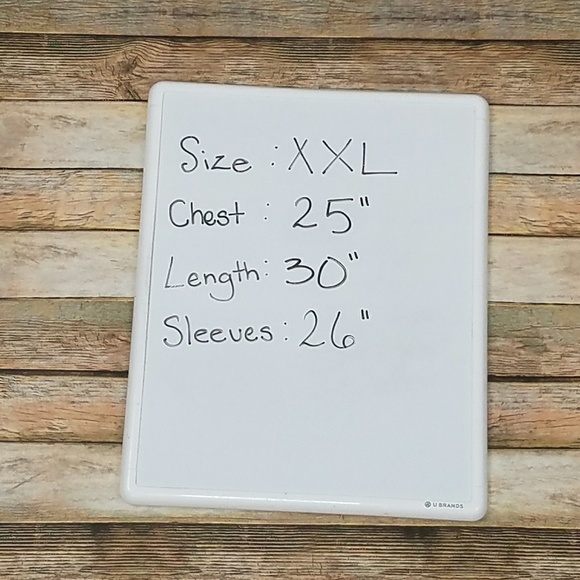 Size : XXL
Chest : 25"
Length: 30"
Sleeves: 26"
U BRANDS